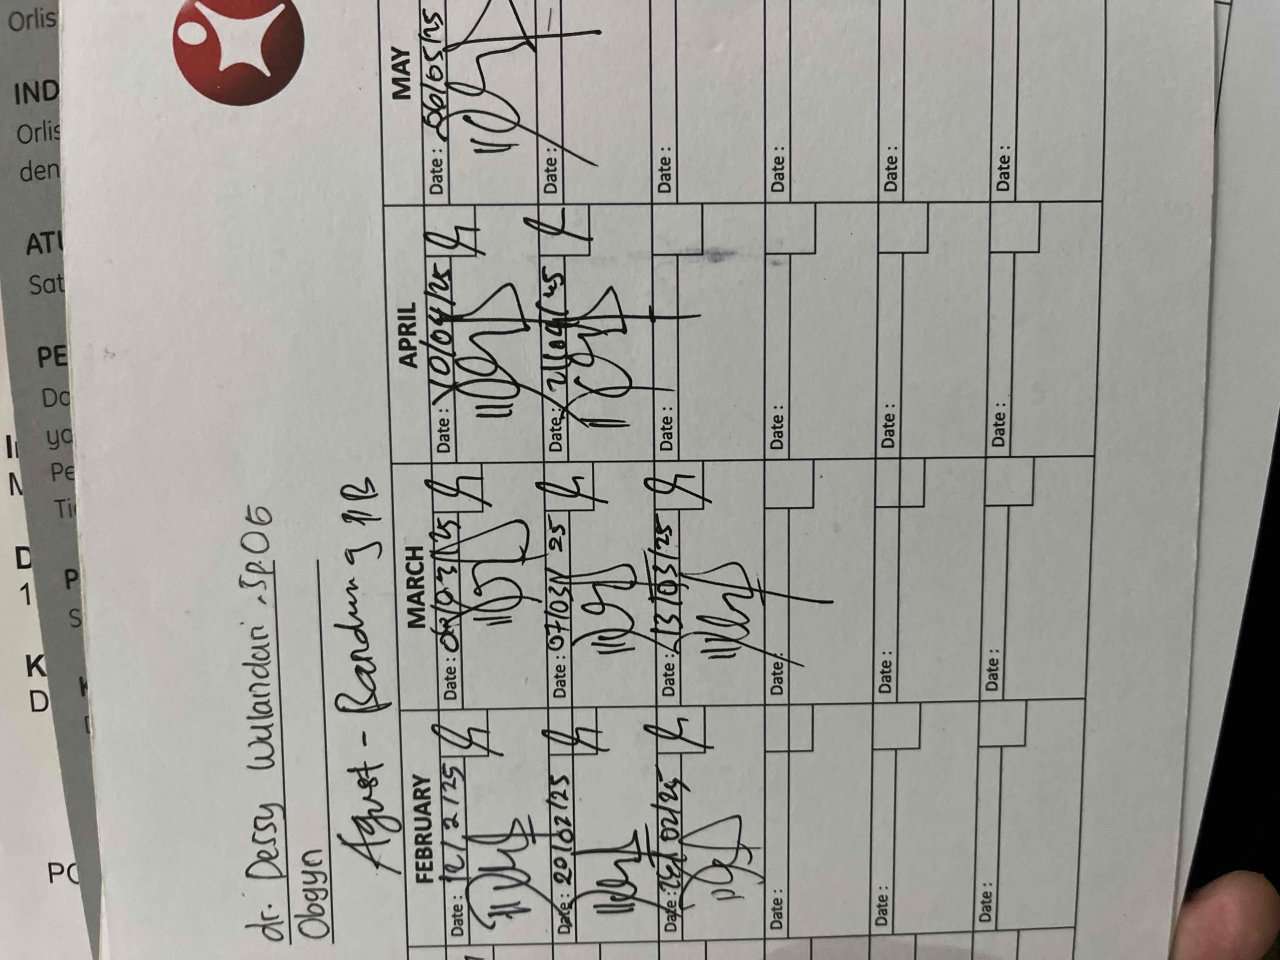 dr. Dessy Wulandari. SpOG
Obgyn
Agust - Bandung
FEBRUARY
MARCH
APRIL
MAY
Date : 12/2/25
Date : 04/03/25
Date : 10/04/25
Date : 06/05/25
Date : 20/02/25
Date : 07/03/25
Date : 21/04/25
Date :
Date : 02/25
Date : 13/03/25
Date :
Date :
Date :
Date :
Date :
Date :
Date :
Date :
Date :
Date :
Date :
Date :
Date :
Date :
Orlis
IND
Orlis
den
Sat
PE
Da
Pe